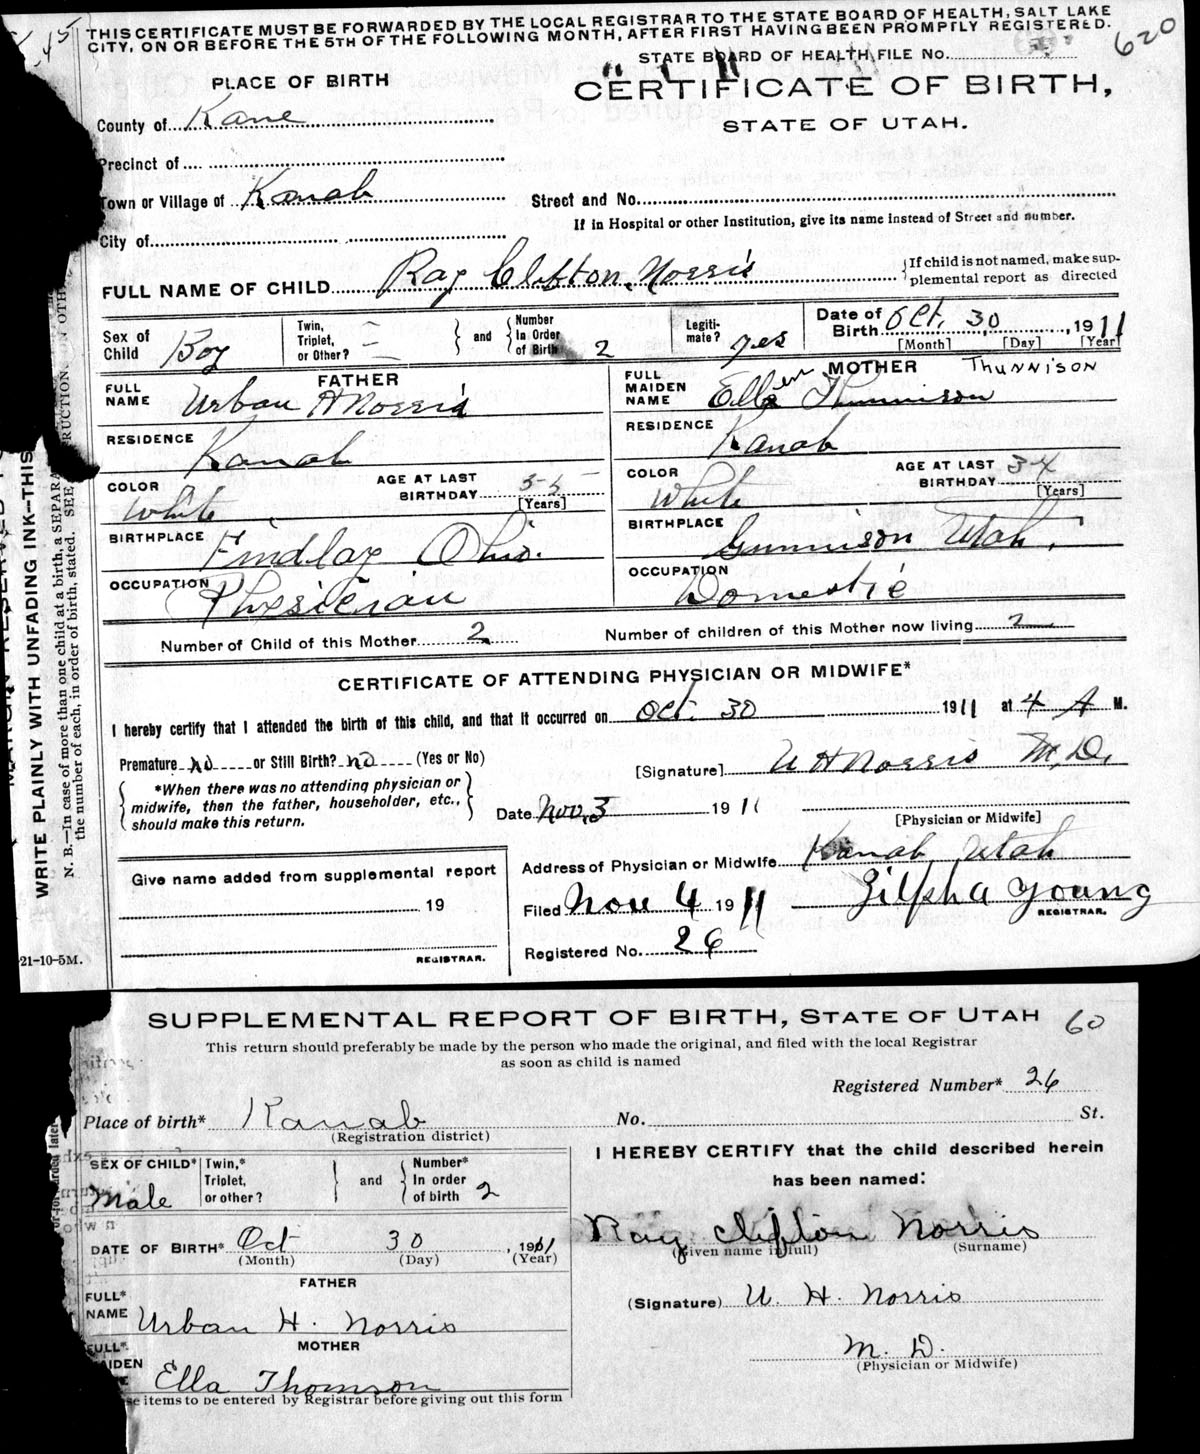 THIS CERTIFICATE MUST BE FORWARDED BY THE LOCAL REGISTRAR TO THE STATE BOARD OF HEALTH, SALT LAKE
CITY, ON OR BEFORE THE 5TH OF THE FOLLOWING MONTH, AFTER FIRST HAVING BEEN PROMPTLY REGISTERED.
620
STATE BOARD OF HEALTH FILE No.
PLACE OF BIRTH
CERTIFICATE OF BIRTH,
STATE OF UTAH.
County of Kane
Precinct of
Town or Village of Kanab
Street and No.
If in Hospital or other Institution, give its name instead of Street and number.
City of
FULL NAME OF CHILD Ray Clifton Norris
If child is not named, make sup-
plemental report as directed
Sex of Child Boy
Twin, Triplet, or Other?
and
Number In Order of Birth 2
Legiti-mate? yes
Date of Birth Oct. 30, 1911
[Month] [Day] [Year]
FATHER
FULL NAME Urban H Norris
RESIDENCE Kanab
COLOR White
AGE AT LAST BIRTHDAY 35 [Years]
BIRTHPLACE Findlay Ohio.
OCCUPATION Physician
MOTHER THUNNISON
FULL MAIDEN NAME Ellen Thunnison
RESIDENCE Kanab
COLOR White
AGE AT LAST BIRTHDAY 34 [Years]
BIRTHPLACE Gunnison Utah.
OCCUPATION Domestic
Number of Child of this Mother 2
Number of children of this Mother now living 2
CERTIFICATE OF ATTENDING PHYSICIAN OR MIDWIFE*
I hereby certify that I attended the birth of this child, and that it occurred on Oct. 30 1911 at 4 A M.
Premature No or Still Birth? no (Yes or No)
[Signature] U H Norris M.D.
*When there was no attending physician or
midwife, then the father, householder, etc.,
should make this return.
Date Nov. 3 1911
[Physician or Midwife]
Address of Physician or Midwife Kanab, Utah
Give name added from supplemental report
19
REGISTRAR.
Filed Nov 4 1911
Zilpha Young
REGISTRAR.
Registered No. 26
21-10-5M.
WRITE PLAINLY WITH UNFADING INK—THIS
N. B.—In case of more than one child at a birth, a SEPARA
the number of each, in order of birth, stated. SEE
SUPPLEMENTAL REPORT OF BIRTH, STATE OF UTAH
60
This return should preferably be made by the person who made the original, and filed with the local Registrar
as soon as child is named
Registered Number* 26
Place of birth* Kanab
(Registration district)
No. St.
SEX OF CHILD* Male
Twin,* Triplet, or other?
and
Number* In order of birth 2
I HEREBY CERTIFY that the child described herein
has been named:
Ray Clifton Norris
(Given name in full) (Surname)
DATE OF BIRTH* Oct 30, 1911
(Month) (Day) (Year)
FATHER
FULL* NAME Urban H. Norris
(Signature) U. H. Norris
M. D.
(Physician or Midwife)
MOTHER
FULL* AIDEN Ella Thomson
se items to be entered by Registrar before giving out this form